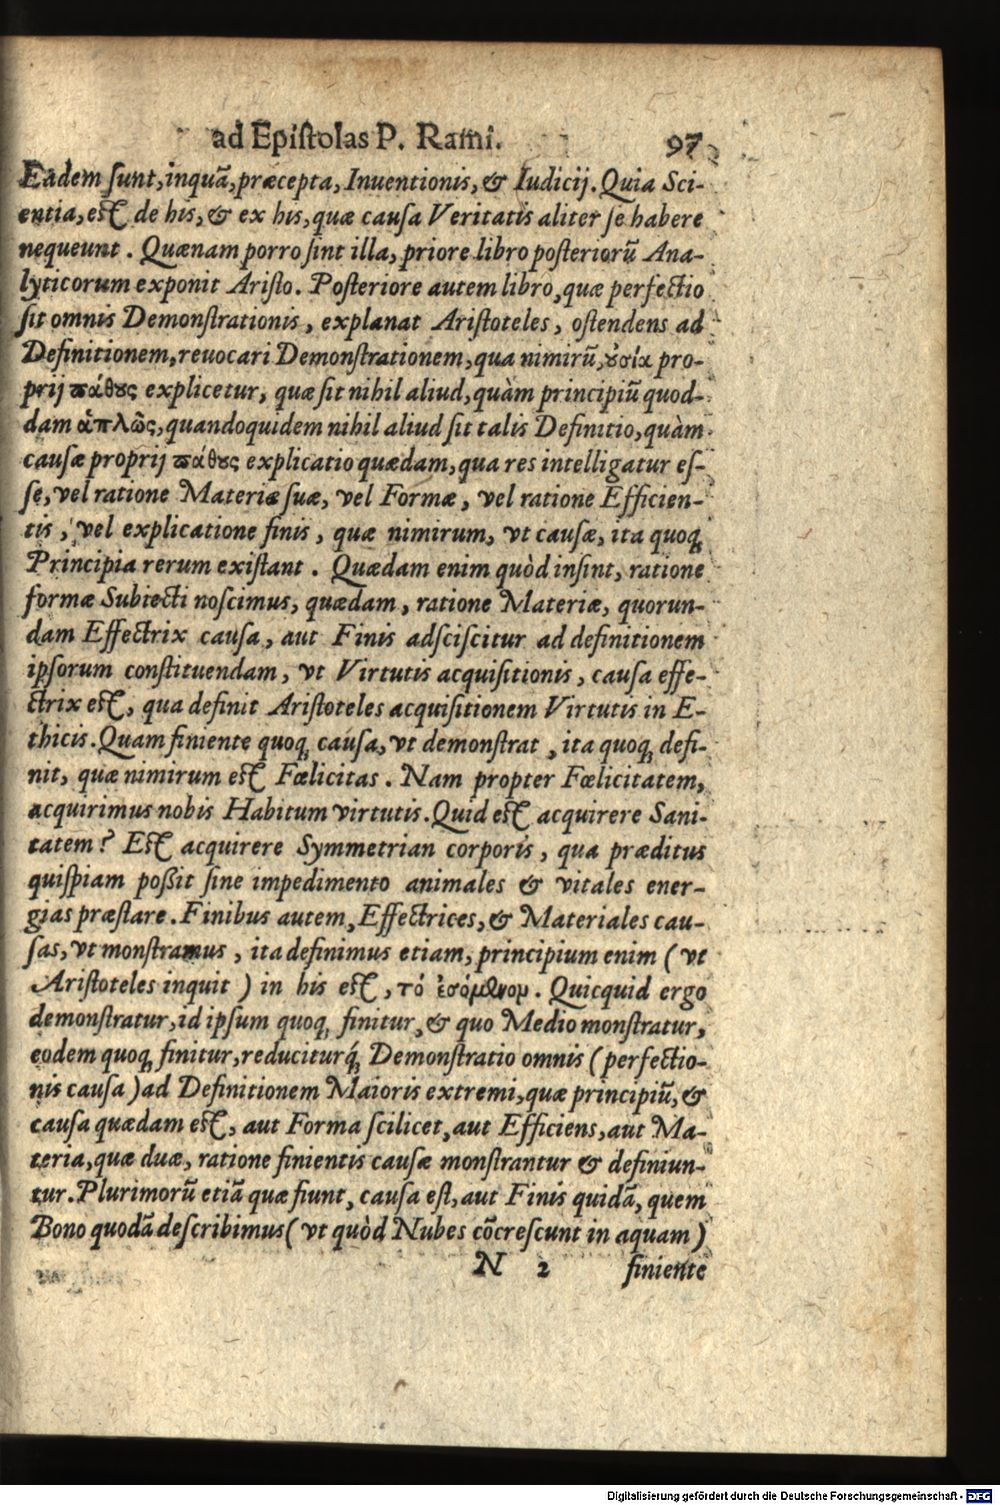 ad Epiſtolas P. Rami. 97
Eadem ſunt, inquã, præcepta, Inuentionis, & Iudicij. Quia Sci-
entia, eſt de his, & ex his, quæ cauſa Veritatis aliter ſe habere
nequeunt. Quænam porro ſint illa, priore libro poſteriorũ Ana-
lyticorum exponit Ariſto. Poſteriore autem libro, quæ perfectio
ſit omnis Demonſtrationis, explanat Ariſtoteles, oſtendens ad
Definitionem, reuocari Demonſtrationem, qua nimirũ, ȣσία pro-
prij ϖάθȣς explicetur, quæ ſit nihil aliud, quàm principiũ quod-
dam ἁπλῶς, quandoquidem nihil aliud ſit talis Definitio, quàm
cauſæ proprij ϖάθȣς explicatio quædam, qua res intelligatur eſ-
ſe, vel ratione Materiæ ſuæ, vel Formæ, vel ratione Efficien-
tis, vel explicatione finis, quæ nimirum, vt cauſæ, ita quoq;
Principia rerum exiſtant. Quædam enim quòd inſint, ratione
formæ Subiecti noſcimus, quædam, ratione Materiæ, quorun-
dam Effectrix cauſa, aut Finis adſciſcitur ad definitionem
ipſorum conſtituendam, vt Virtutis acquiſitionis, cauſa effe-
ctrix eſt, qua definit Ariſtoteles acquiſitionem Virtutis in E-
thicis. Quam finiente quoq; cauſa, vt demonſtrat, ita quoq; defi-
nit, quæ nimirum eſt Fœlicitas. Nam propter Fœlicitatem,
acquirimus nobis Habitum virtutis. Quid eſt acquirere Sani-
tatem? Eſt acquirere Symmetrian corporis, qua præditus
quiſpiam poßit ſine impedimento animales & vitales ener-
gias præſtare. Finibus autem, Effectrices, & Materiales cau-
ſas, vt monſtramus, ita definimus etiam, principium enim (vt
Ariſtoteles inquit) in his eſt, τὸ ἐσόμενον. Quicquid ergo
demonſtratur, id ipſum quoq; finitur, & quo Medio monſtratur,
eodem quoq; finitur, reduciturq́; Demonſtratio omnis (perfectio-
nis cauſa) ad Definitionem Maioris extremi, quæ principiũ, &
cauſa quædam eſt, aut Forma ſcilicet, aut Efficiens, aut Ma-
teria, quæ duæ, ratione finientis cauſæ monſtrantur & definiun-
tur. Plurimorũ etiã quæ fiunt, cauſa eſt, aut Finis quidã, quem
Bono quodã deſcribimus (vt quòd Nubes cõcreſcunt in aquam)
N 2 finiente
Digitalisierung gefördert durch die Deutsche Forschungsgemeinschaft - DFG